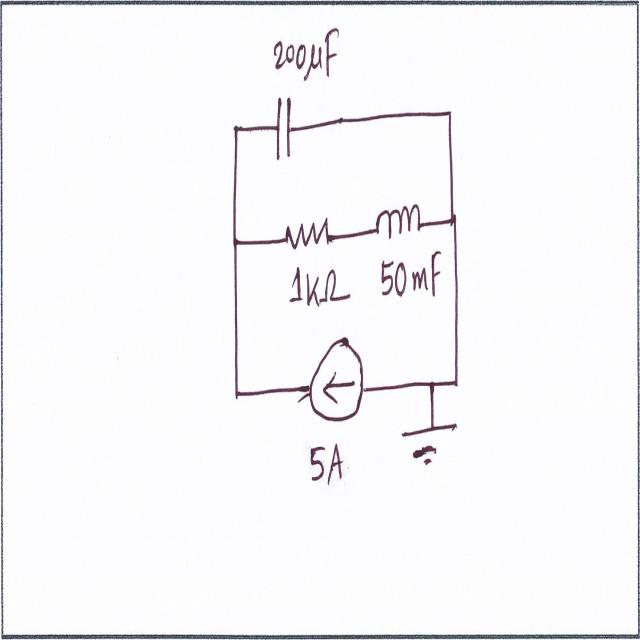 200µF
1KΩ 50mF
5A